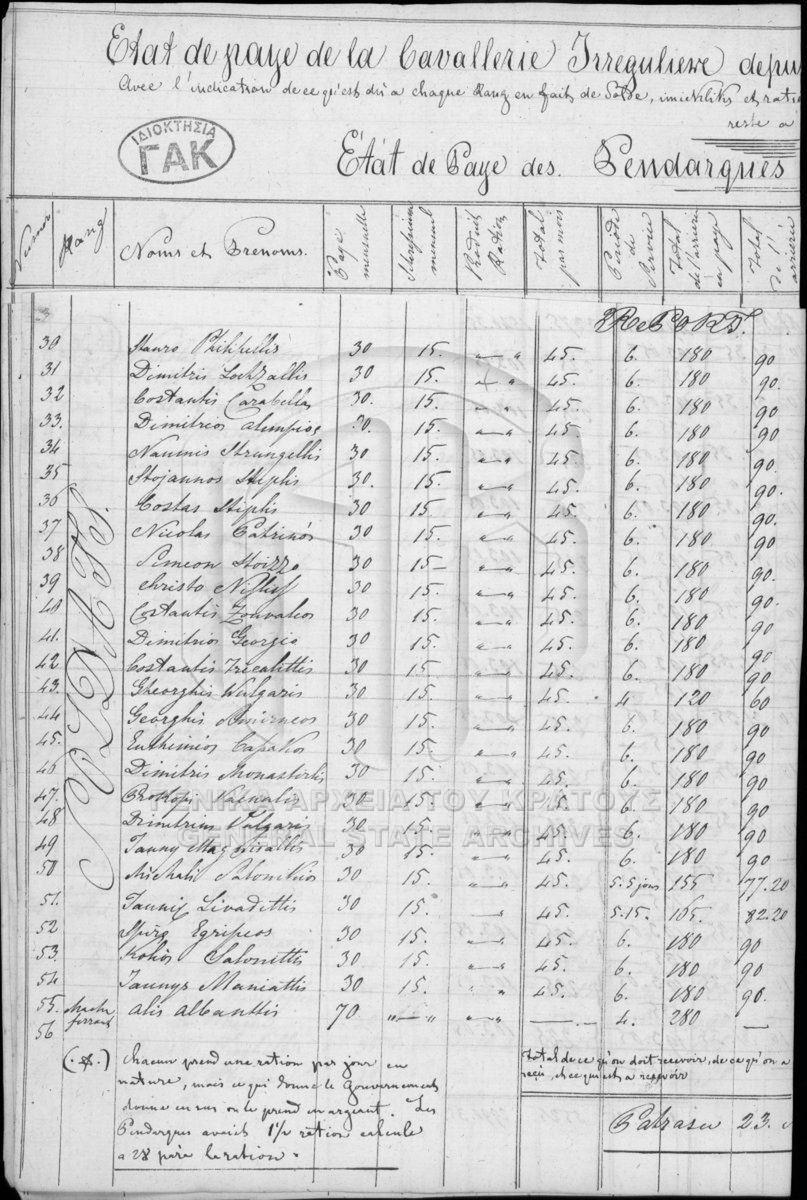 Etat de paye de la Cavallerie Irreguliere depu
Avec l'indication de ce qu'est dû a chaque Rang en fait de Solde, et rati
reste a
ΙΔΙΟΚΤΗΣΙΑ
ΓΑΚ
Etát de Paye des Pendarques
Rang Noms et Prenoms. Paye mensuelle mensuel Produit Ration Total par mois Periode de Service Total de l'arrieré en paye Total de l'arrieré
REPORT.
SOLDATS.
30 Stauro 30 15. " " 45. 6. 180 90
31 Dimitris 30 15. " 45. 6. 180 90.
32 Costantis Carabellas 30. 15. " " 45. 6. 180 90
33. Dimitrios Alimpios 30. 15. " " 45. 6. 180 90
34 Naumis Strungellis 30 15. " " 45. 6. 180 90
35 Stojannos Stiplis 30. 15. " " 45. 6. 180 90.
36 Costas Stiplis 30 15. " " 45. 6. 180 90.
37 Nicolas Patrinós 30 15. " " 45. 6. 180 90.
38 Simeon 30 15 " " 45. 6. 180 90.
39 Christo 30 15. " " 45. 6. 180 90.
40 Costantis 30 15. " " 45. 6. 180 90
41. Dimitrios Georgio 30 15. " " 45. 6. 180 90
42 Costantis Tricalittis 30 15. " " 45. 6. 180 90
43. Gheorghis Vulgaris 30 15. " " 45. 4 120 60
44 Georghis Smirneos 30 15. " " 45. 6. 180 90
45. Euthimios 30 15. " " 45. 6. 180 90
46 Dimitris Monastirlis 30 15. " " 45. 6. 180 90
47. Procopi 30 15. " " 45. 6. 180 90
48 Dimitrius Vulgaris 30 15. " " 45. 6. 180 90
49 Janny 30 15. " " 45. 6. 180 90
50 Michali 30 15. " " 45. 5.5 jours 155 77.20
51. Jannis Livadittis 30 15. " " 45. 5.15. 165. 82.20
52 Spiro Egripeos 30 15. " " 45. 6. 180 90
53. Kokos Salonittis 30 15. " " 45. 6. 180 90
54 Jannys Maniattis 30 15. " " 45. 6. 180 90.
55. ferrant Alis Albanttis 70 " " " " 4. 280
56
ΓΕΝΙΚΑ ΑΡΧΕΙΑ ΤΟΥ ΚΡΑΤΟΥΣ
GENERAL STATE ARCHIVES
chacun prend une ration par jour en
nature, mais ce qui donne le Gouvernement
donne en sus on le prend en argent. Les
Pendarques avait 1½ ration calculé
a 28 parà la ration.
Total de ce qu'on doit recevoir, de ce qu'on a
reçu, et ce qui est a recevoir
Patrasso 23.